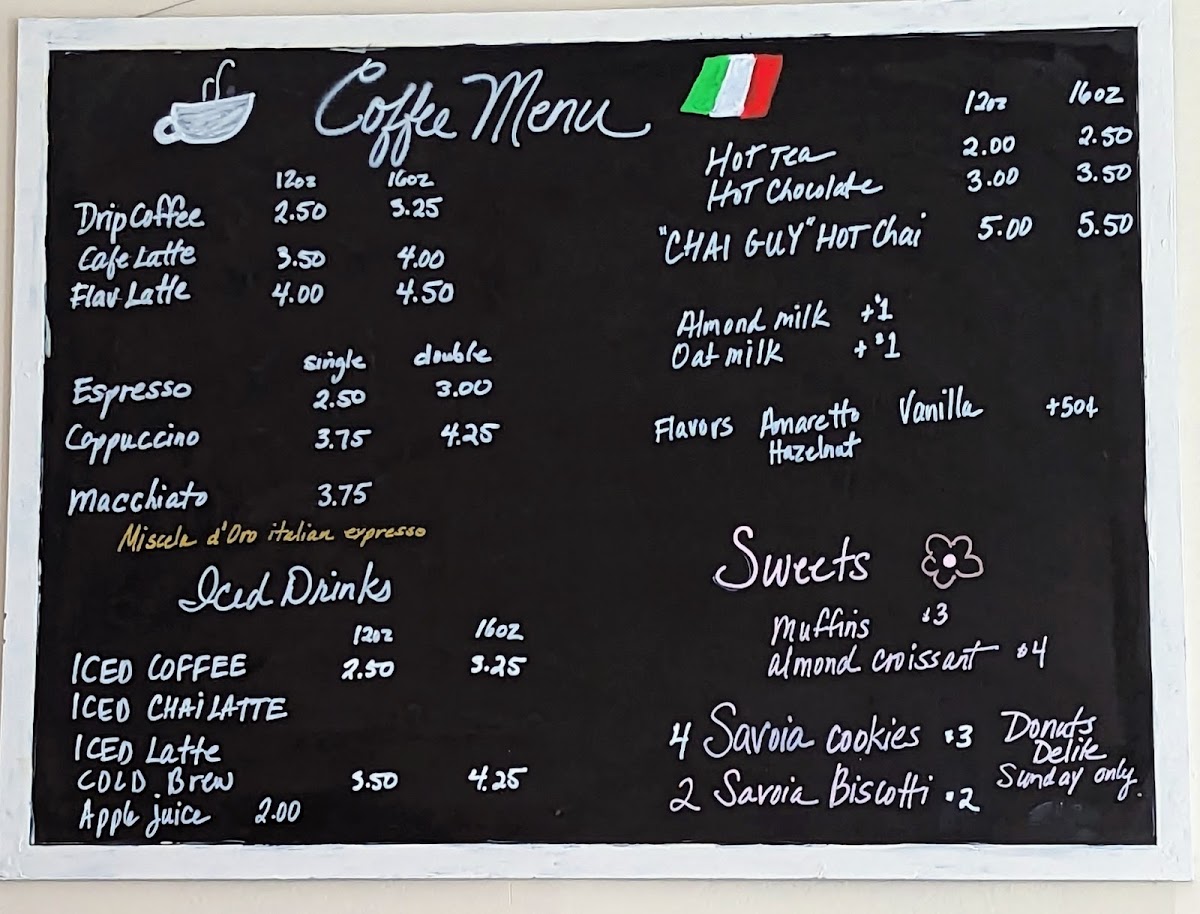 Coffee Menu
12oz 16oz
Drip Coffee 2.50 3.25
Cafe Latte 3.50 4.00
Flav Latte 4.00 4.50
single double
Espresso 2.50 3.00
Cappuccino 3.75 4.25
Macchiato 3.75
Miscela d'Oro italian expresso
Iced Drinks
12oz 16oz
ICED COFFEE 2.50 3.25
ICED CHAI LATTE
ICED Latte
COLD Brew 3.50 4.25
Apple juice 2.00
12oz 16oz
HOT Tea 2.00 2.50
HOT Chocolate 3.00 3.50
"CHAI GUY" HOT Chai 5.00 5.50
Almond milk +$1
Oat milk +$1
Flavors Amaretto Vanilla +50¢
Hazelnut
Sweets
Muffins $3
almond croissant $4
4 Savoia cookies $3
2 Savoia Biscotti $2
Donuts
Delite
Sunday only.